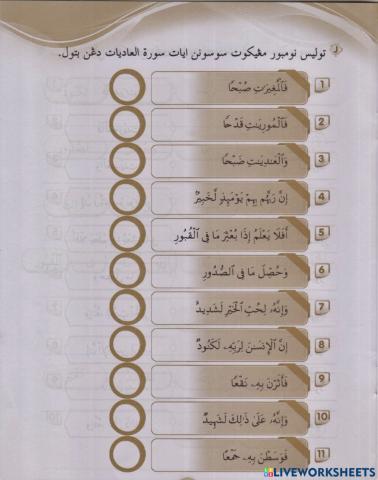 توليس نومبور مڠيكوت سوسونن ايات سورة العاديات دڠن بتول.
1 فَٱلْمُغِيرَٰتِ صُبْحًا
2 فَٱلْمُورِيَـٰتِ قَدْحًا
3 وَٱلْعَـٰدِيَـٰتِ ضَبْحًا
4 إِنَّ رَبَّهُم بِهِمْ يَوْمَئِذٍ لَّخَبِيرٌۢ
5 أَفَلَا يَعْلَمُ إِذَا بُعْثِرَ مَا فِى ٱلْقُبُورِ
6 وَحُصِّلَ مَا فِى ٱلصُّدُورِ
7 وَإِنَّهُۥ لِحُبِّ ٱلْخَيْرِ لَشَدِيدٌ
8 إِنَّ ٱلْإِنسَـٰنَ لِرَبِّهِۦ لَكَنُودٌ
9 فَأَثَرْنَ بِهِۦ نَقْعًا
10 وَإِنَّهُۥ عَلَىٰ ذَٰلِكَ لَشَهِيدٌ
11 فَوَسَطْنَ بِهِۦ جَمْعًا
LIVEWORKSHEETS